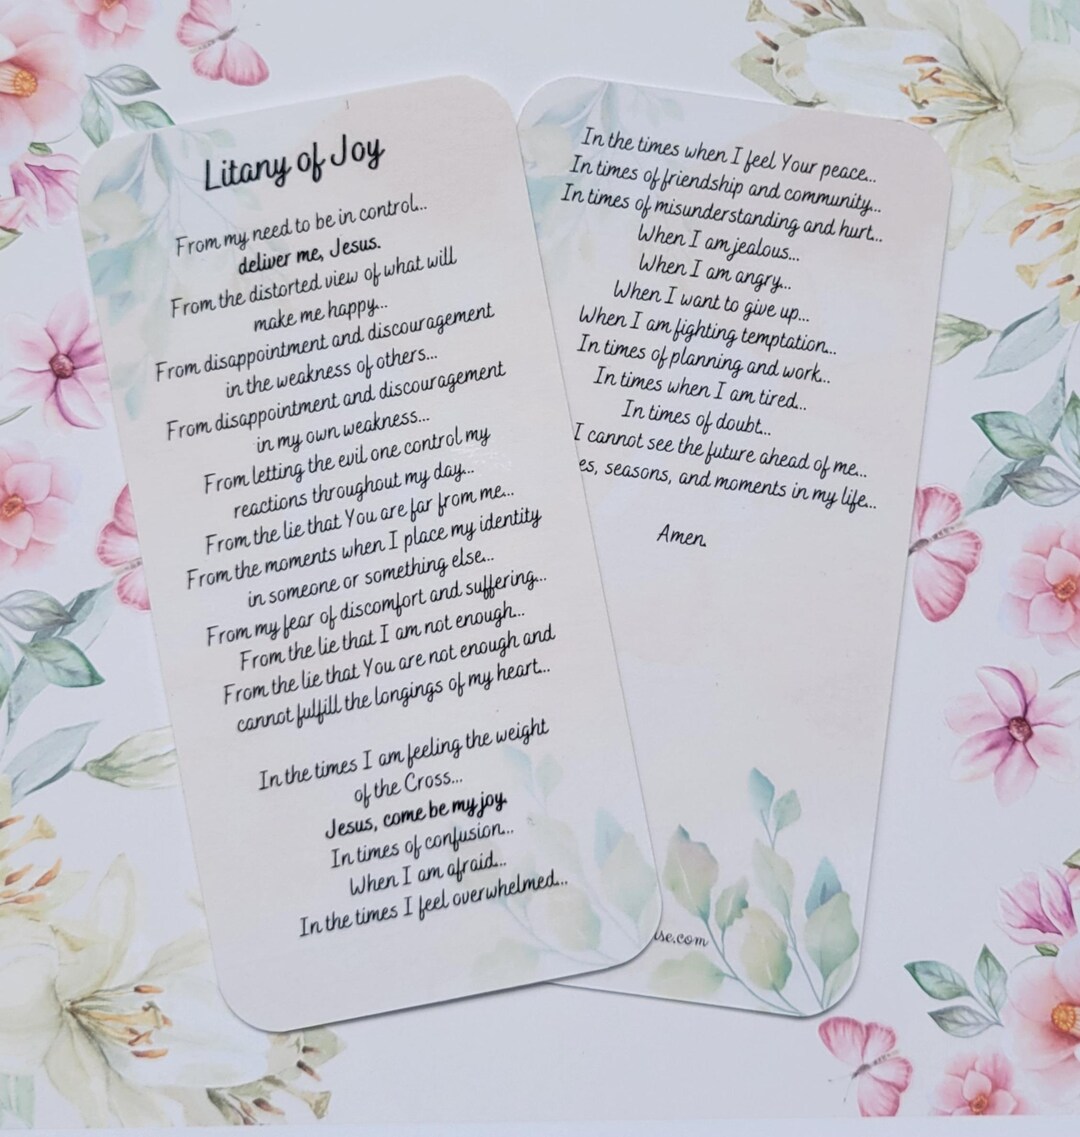 Litany of Joy
From my need to be in control...
deliver me, Jesus.
From the distorted view of what will
make me happy...
From disappointment and discouragement
in the weakness of others...
From disappointment and discouragement
in my own weakness...
From letting the evil one control my
reactions throughout my day...
From the lie that You are far from me...
From the moments when I place my identity
in someone or something else...
From my fear of discomfort and suffering...
From the lie that I am not enough...
From the lie that You are not enough and
cannot fulfill the longings of my heart...
In the times I am feeling the weight
of the Cross...
Jesus, come be my joy.
In times of confusion...
When I am afraid...
In the times I feel overwhelmed...
In the times when I feel Your peace...
In times of friendship and community...
In times of misunderstanding and hurt...
When I am jealous...
When I am angry...
When I want to give up...
When I am fighting temptation...
In times of planning and work...
In times when I am tired...
In times of doubt...
I cannot see the future ahead of me...
es, seasons, and moments in my life...
Amen.
se.com